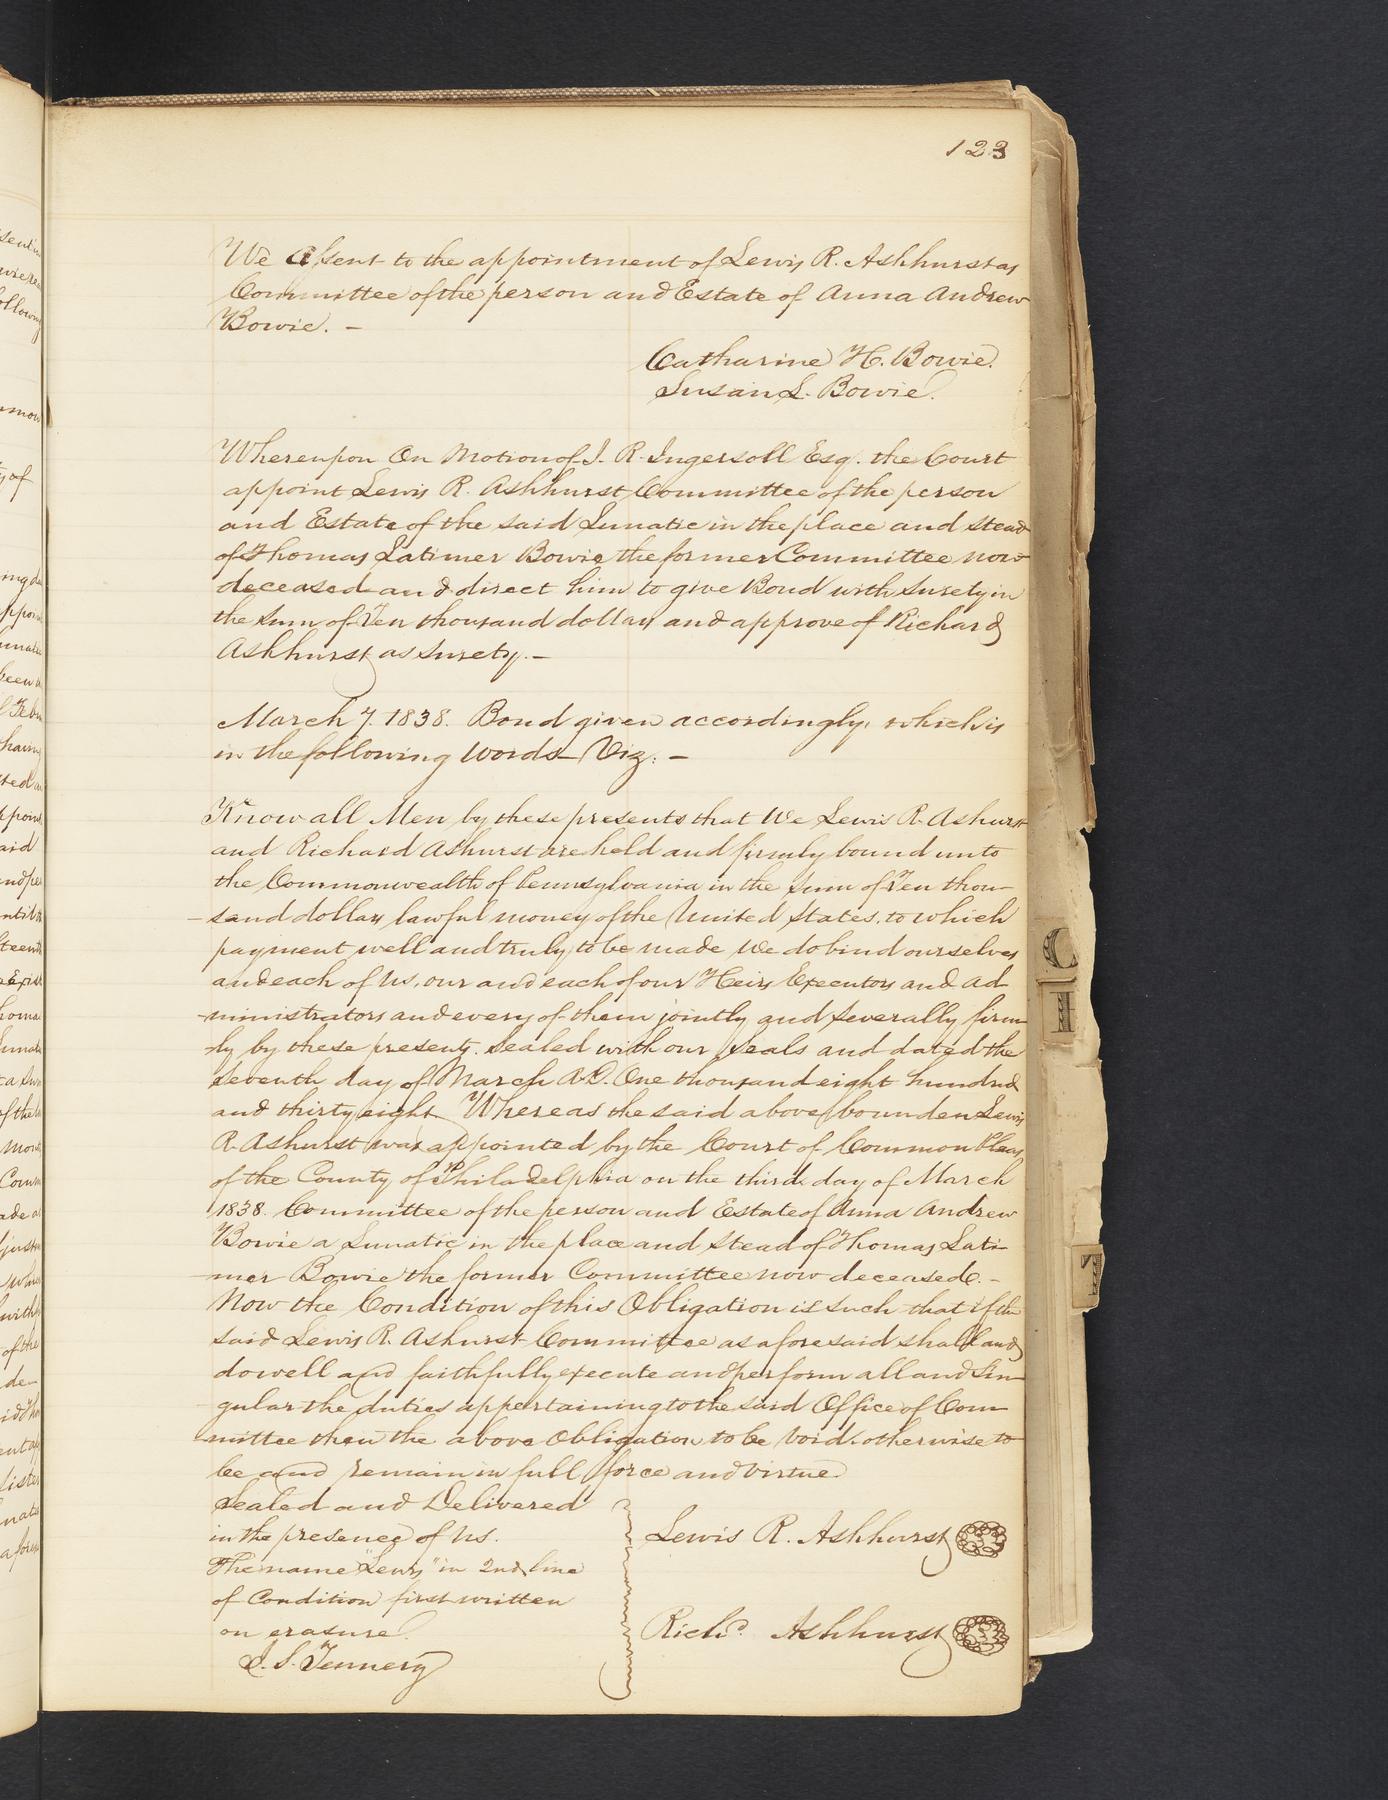 123
We Assent to the appointment of Lewis R. Ashhurst as
Committee of the person and Estate of Anna Andrew
Bowie. –
Catharine H. Bowie.
Susan L. Bowie.
Whereupon On Motion of J. R. Ingersoll Esq. the Court
appoint Lewis R. Ashhurst Committee of the person
and Estate of the said Lunatic in the place and stead
of Thomas Latimer Bowie the former Committee now
deceased and direct him to give Bond with Surety in
the Sum of Ten thousand dollars and approve of Richard
Ashhurst as Surety. –
March 7. 1838. Bond given accordingly, which is
in the following words – Viz: –
Know all Men by these presents that We Lewis R. Ashurst
and Richard Ashurst are held and firmly bound unto
the Commonwealth of Pennsylvania in the Sum of Ten thou-
-sand dollars lawful money of the United States, to which
payment well and truly to be made We do bind ourselves
and each of us, our and each of our Heirs Executors and ad
-ministrators and every of them jointly and Severally firm-
-ly by these presents. Sealed with our Seals and dated the
Seventh day of March A.D. One thousand eight hundred
and thirty eight Whereas the said above bounden Lewis
R. Ashurst was appointed by the Court of Common Pleas
of the County of Philadelphia on the third day of March
1838. Committee of the person and Estate of Anna Andrew
Bowie a Lunatic in the place and Stead of Thomas Lati-
-mer Bowie the former Committee now deceased. –
Now the Condition of this Obligation is such that if the
said Lewis R. Ashurst Committee as aforesaid shall and
do well and faithfully execute and perform all and Sin-
gular the duties appertaining to the said Office of Com-
-mittee then the above Obligation to be Void. otherwise to
be and remain in full force and virtue
Sealed and Delivered
in the presence of us.
The name "Lewis" in 2nd line
of Condition first written
on erasure.
J. S. Tennery
Lewis R. Ashhurst
Richd. Ashhurst
C
I
T